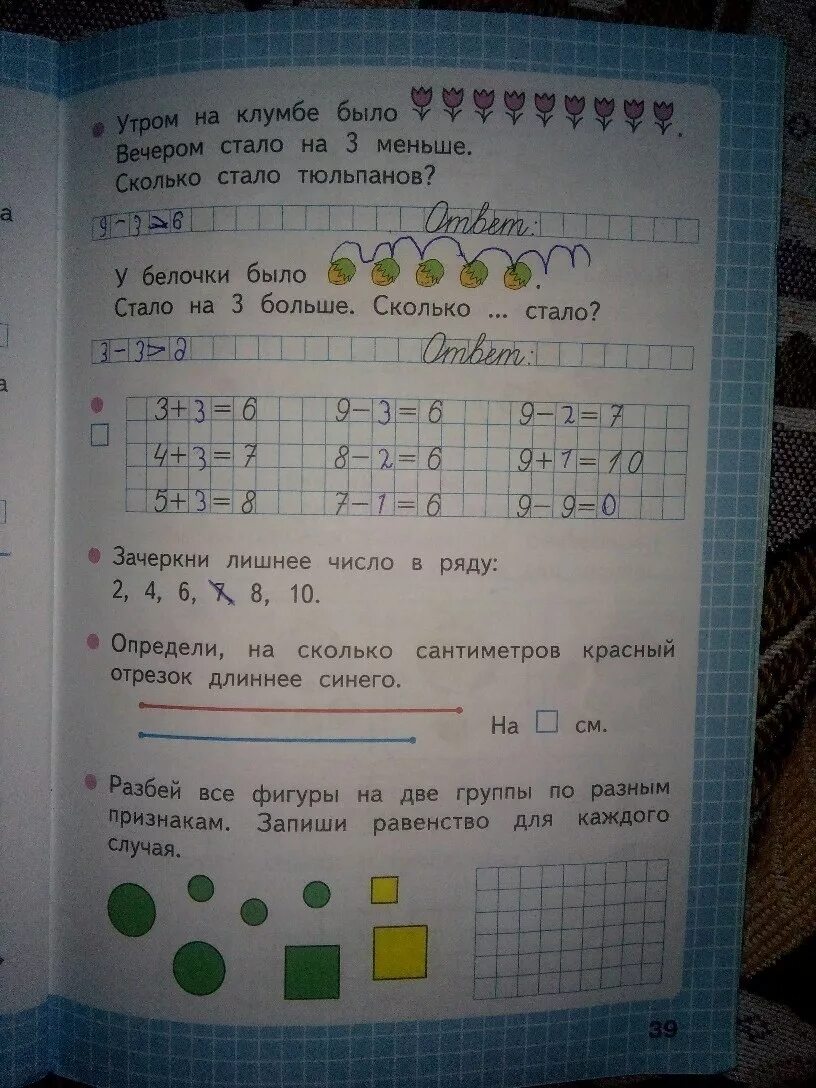 Утром на клумбе было .
Вечером стало на 3 меньше.
Сколько стало тюльпанов?
9-3=6 Ответ:
У белочки было .
Стало на 3 больше. Сколько ... стало?
3-3= Ответ:
3+3=6 9-3=6 9-2=7
4+3=7 8-2=6 9+1=10
5+3=8 7-1=6 9-9=0
Зачеркни лишнее число в ряду:
2, 4, 6, 7, 8, 10.
Определи, на сколько сантиметров красный
отрезок длиннее синего.
На см.
Разбей все фигуры на две группы по разным
признакам. Запиши равенство для каждого
случая.
39
а
а